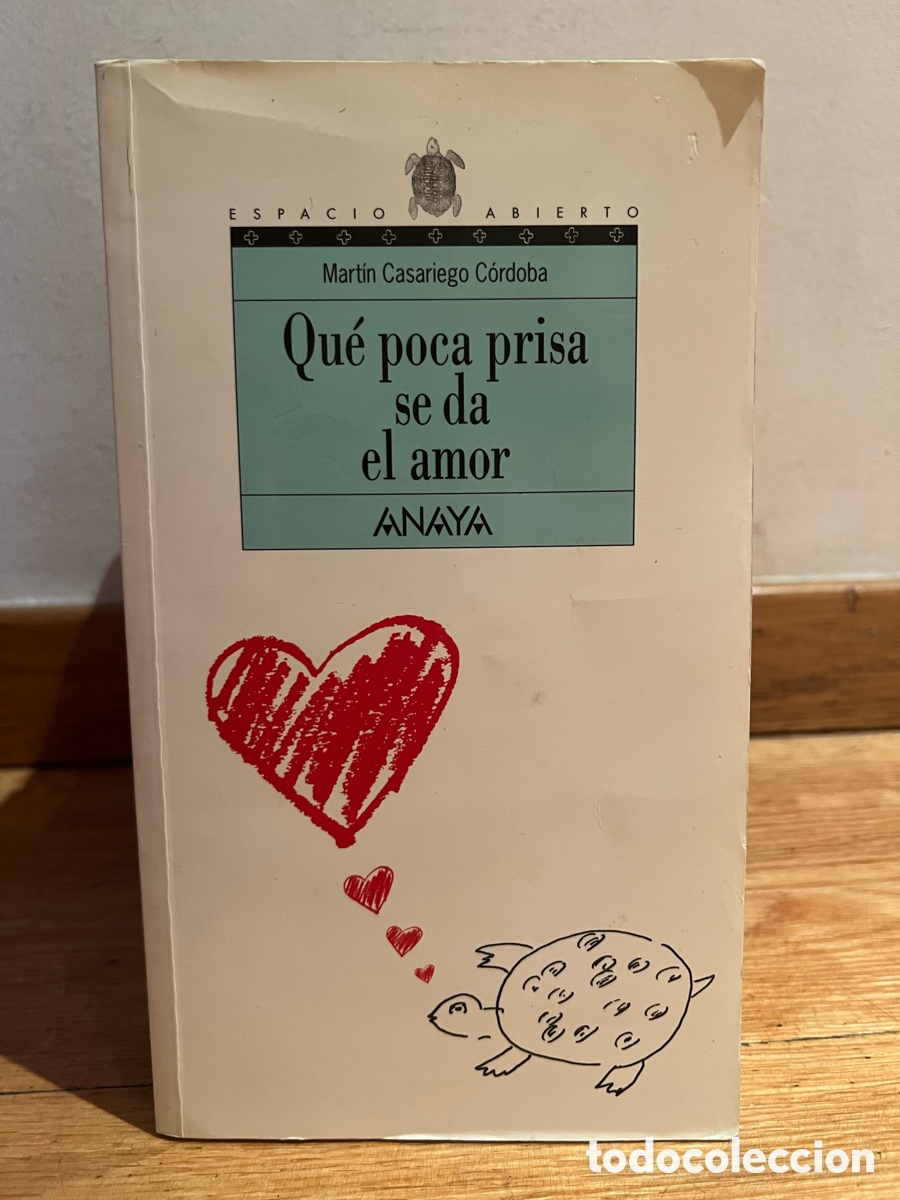 ESPACIO ABIERTO
Martín Casariego Córdoba
Qué poca prisa
se da
el amor
ANAYA
todocoleccion